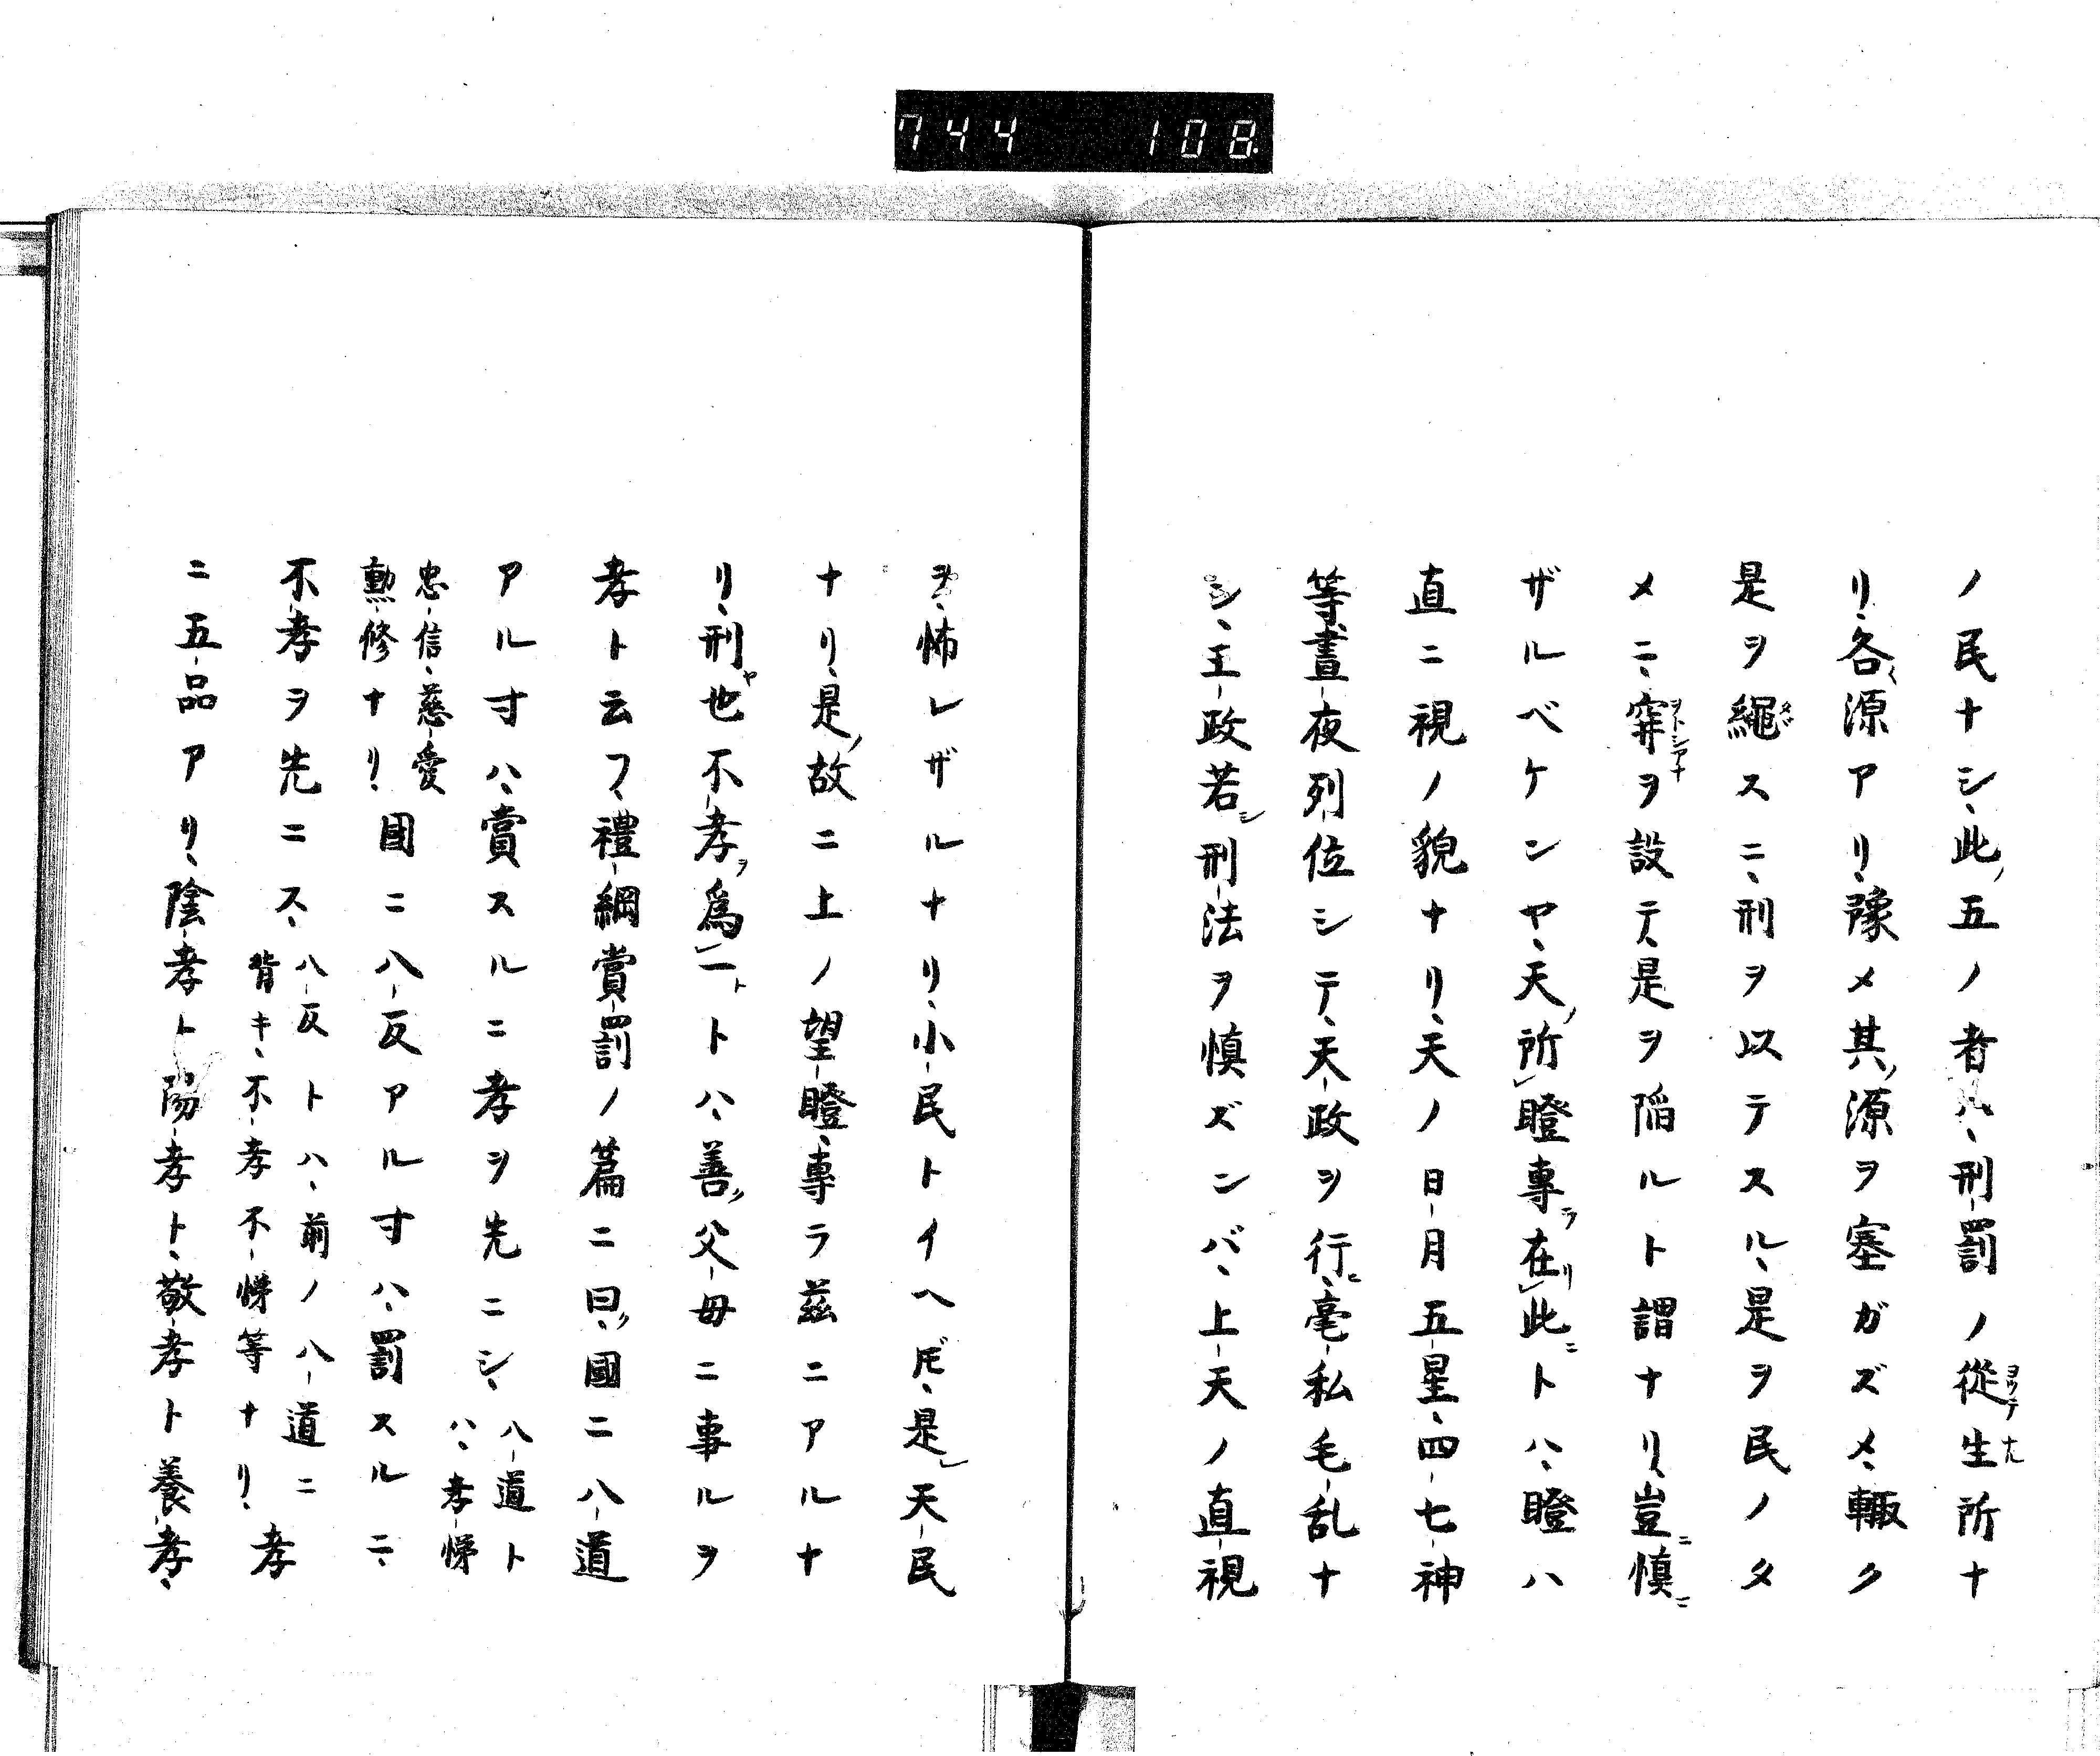 744 108
ノ民ナシ、此ノ五ノ者ハ、刑罰ノ從生所ナ
リ、各源アリ、豫メ其ノ源ヲ塞ガズメ、輙ク
是ヲ繩スニ、刑ヲ以テスル、是ヲ民ノタ
メニ、穽ヲ設テ、是ヲ陷ルト謂ナリ、豈ニ慎ニ
ザルベケンヤ、天ノ所瞪專ラ在リ此ニトハ、瞪ハ
直ニ視ノ貌ナリ、天ノ日月五星、四七神
等、晝夜列位シテ、天政ヲ行ヒ、毫私毛乱ナ
シ、王政若シ刑法ヲ慎ズンバ、上天ノ直視
ヲ、怖レザルナリ、小民トイヘ𪜈、是レ天民
ナリ、是ノ故ニ上ノ望瞪、專ラ茲ニアルナ
リ、刑ヤ也不孝ヲ爲レ一トトハ、善ク父母ニ事ルヲ
孝ト云フ、禮綱賞罰ノ篇ニ曰、國ニ八道
アル寸ハ、賞スルニ孝ヲ先ニシ、八道ト
ハ、孝悌
忠信、慈愛
勲修ナリ、國ニ八反アル寸ハ、罰スルニ、
不孝ヲ先ニス、八反トハ、前ノ八道ニ
背キ、不孝不悌等ナリ、孝
ニ五品アリ、陰孝ト陽孝ト、敬孝ト養孝、